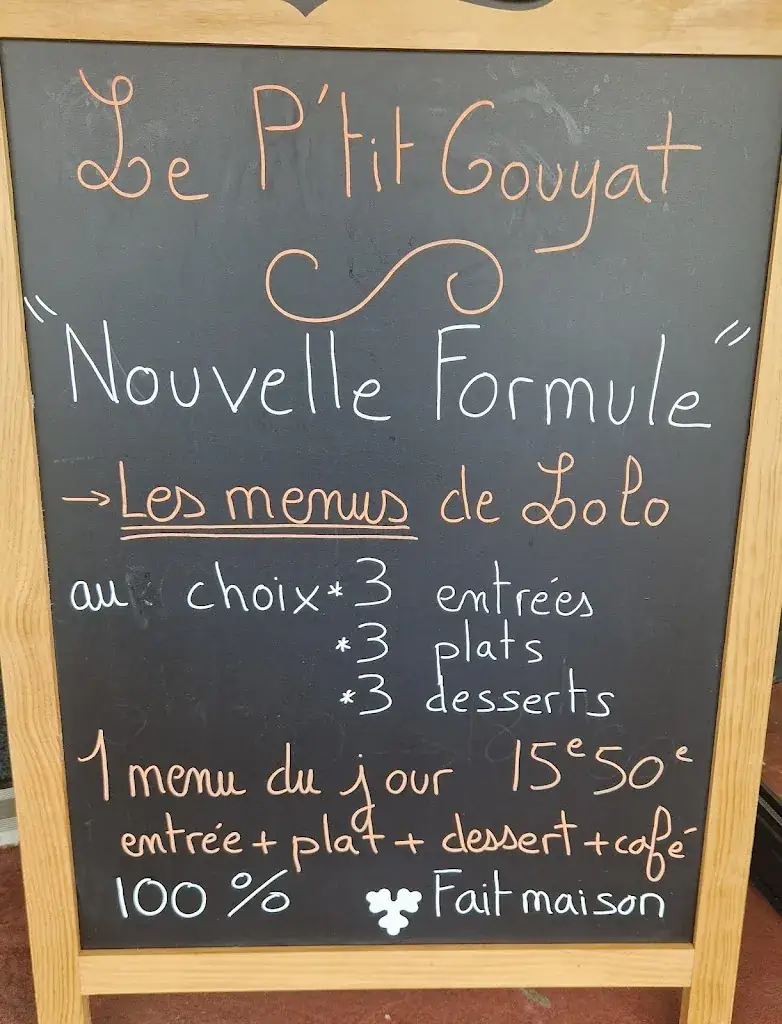 Le P'tit Gouyat
"Nouvelle Formule"
→ Les menus de Lolo
au choix * 3 entrées
* 3 plats
* 3 desserts
1 menu du jour 15e50e
entrée + plat + dessert + café
100 % Fait maison